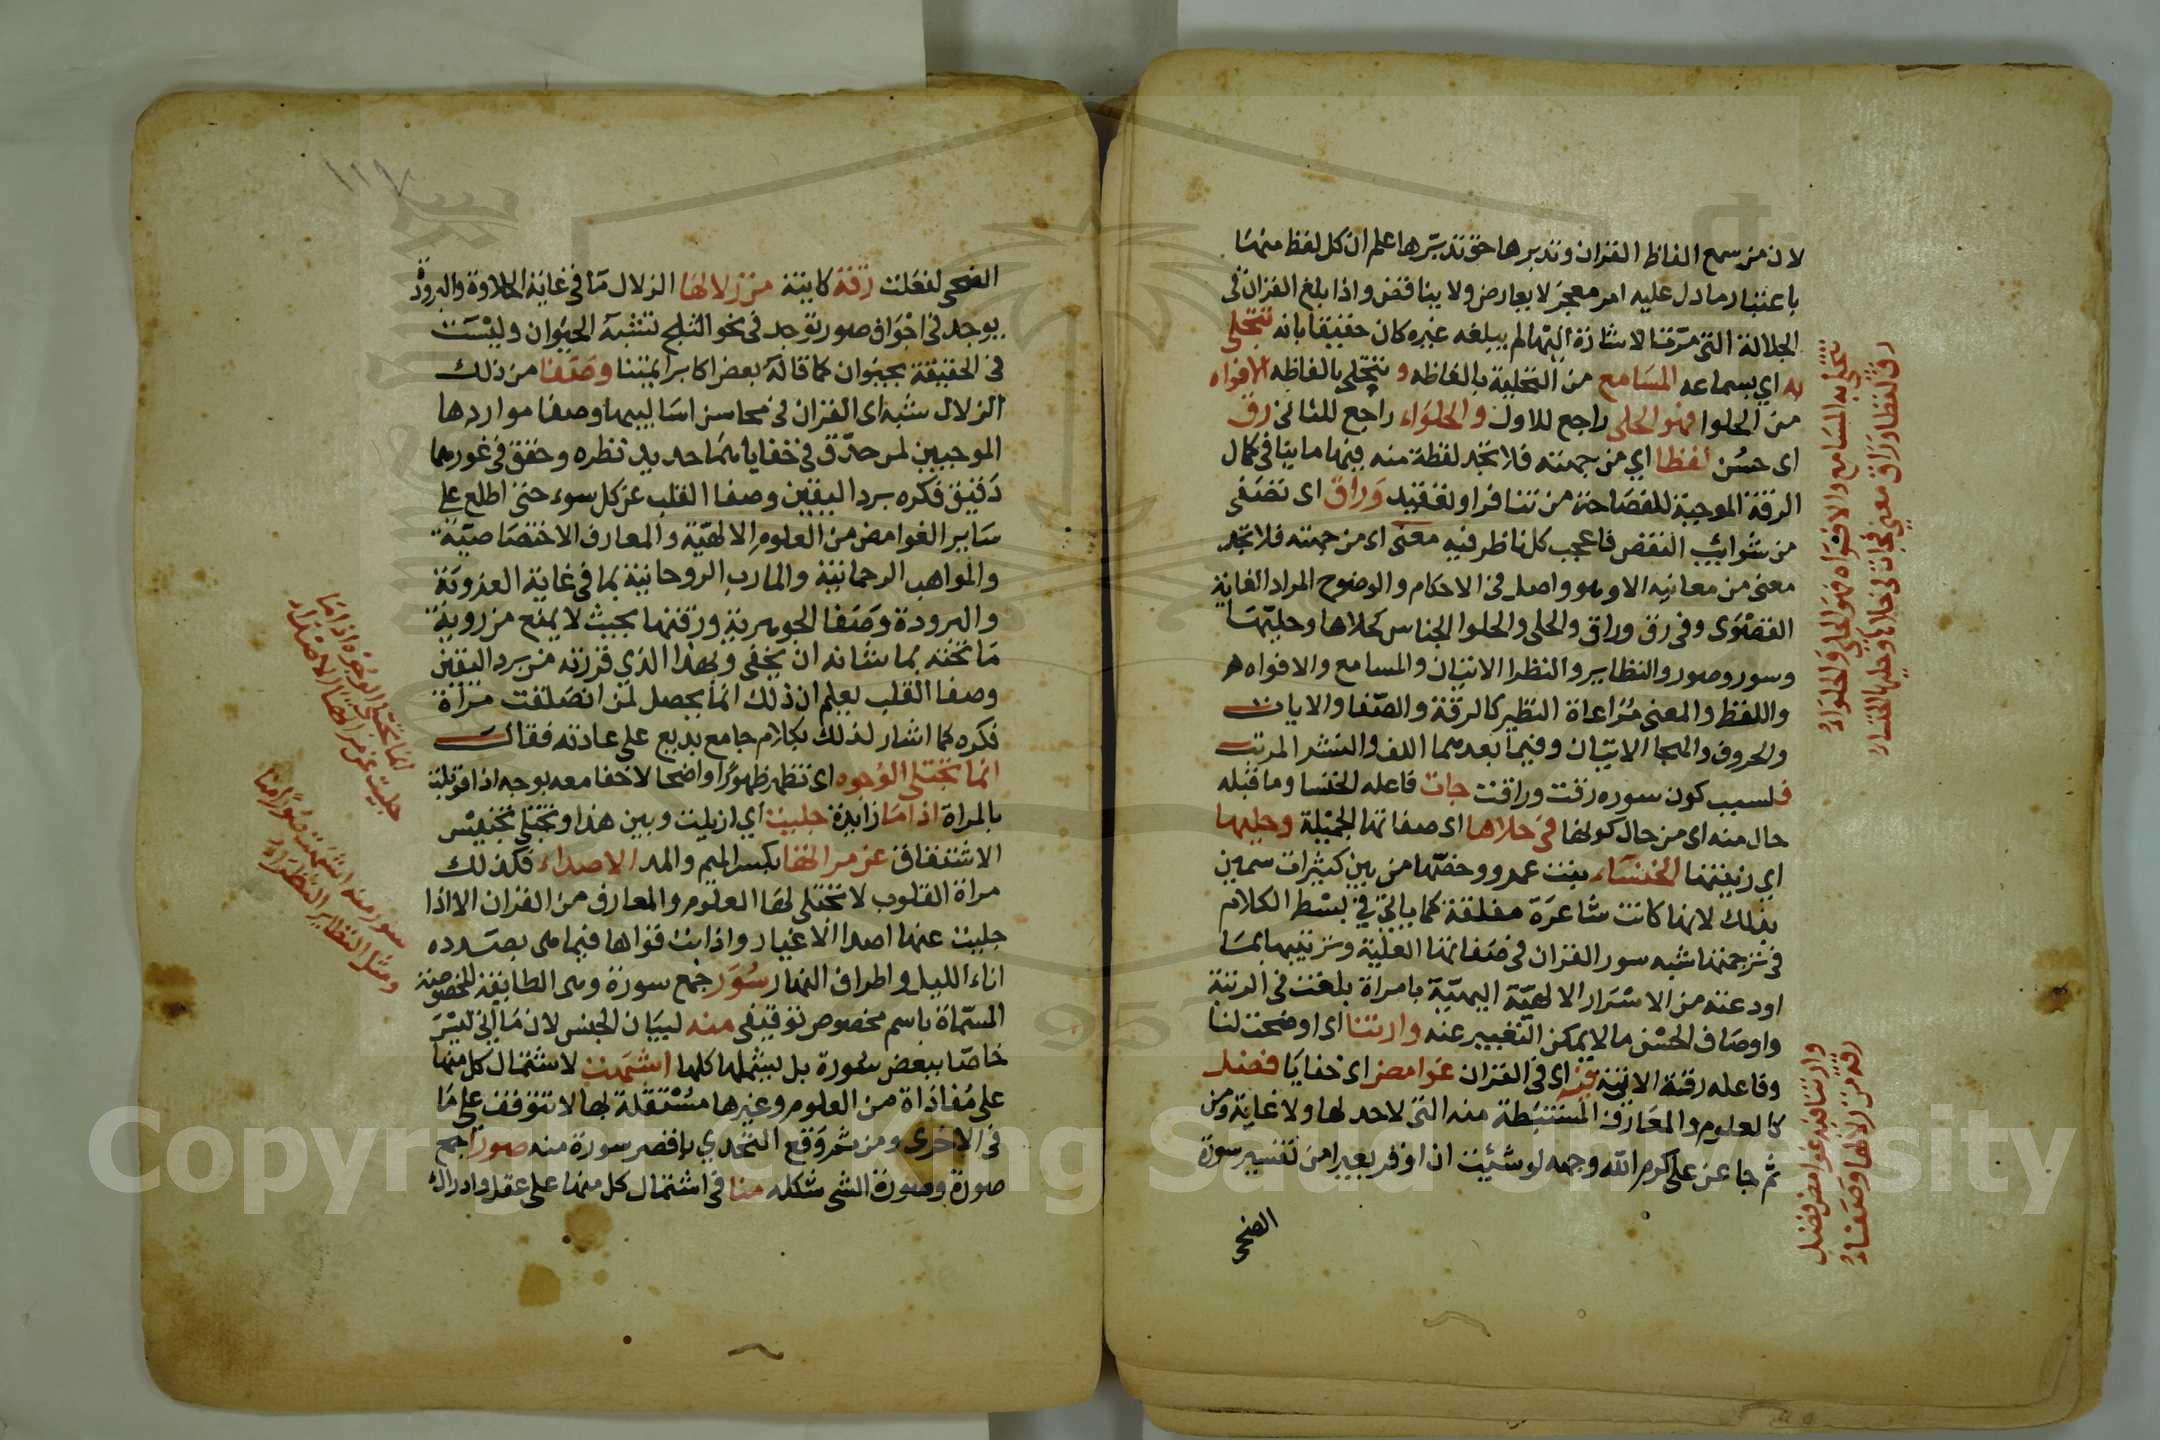 لان من سمع الفاظ القران وتدبرها حق تدبرها علم ان كل لفظ منها
باعتبار ما دل عليه امر معجز لا يعارض ولا يناقض واذا بلغ القران في
الجلالة التي مرّت الاشارة اليها ما لم يبلغه غيره كان حقيقا بانه تتحلى
به اي بسماعه المسامع من التحلية بالفاظه و تتحلى بالفاظه الافواه
من الحلوا فهو الحلى راجع للاول والحلواء راجع للثاني رق
اى حسن لفظا اي من جهته فلا تجد لفظة منه فيها ما ينافي كمال
الرقة الموجبة للفصاحة من تنافر او تعقيد وراق اى تصفى
من شوائب النقص فاعجب كل ناظر فيه معنى اى من جهته فلا تجد
معنى من معانيه الا وهو واصل في الاحكام والوضوح المراد الغاية
القصوى وفي رق وراق والحلى والحلوا الجناس كحلاها وحليها
وسور وصور والنظاير والنظرا الاتيان والمسامع والافواه
واللفظ والمعنى مراعاة النظير كالرقة والصفا والايات
والحروف والهجا الاتيان وفيما بعدهما اللف والنشر المرتب
فلسبب كون سوره رقت وراقت جات فاعله الخنسا وما قبله
حال منه اى من حال كونها في حلاها اى صفاتها الجميلة وحليها
اي زينتها الخنساء بنت عمرو وخصها من بين كثيرات سمين
بذلك لانها كانت شاعرة مفلقة كما ياتي في بسط الكلام
في ترجمتها شبه سور القران في صفاتها العلية وترتيبها بما
اودعته من الاسرار الالهية البهية بامراة بلغت في الرتبة
واوصاف الحسن ما لا يمكن التعبير عنه وارتنا اى اوضحت لنا
وفاعله رقة الاتية فيه اى في القران غوامض اى خفايا فضل
كالعلوم والمعارف المستنبطة منه التي لا حد لها ولا غاية ومن
ثم جا عن على كرم الله وجهه لو شئت ان اوقر بعيرا من تفسير سورة
الضحى
تتحلى به المسامع والافواه فهو الحلى والحلواء
رق لفظا وراق معنى فجات في حلاها وحليها الخنساء
وارتنا فيه غوامض فضل
رقة من زلالها وصفاء
١١٧
الضحى لفعلت رقة كاينة من زلالها الزلال ما في غاية الحلاوة والبرودة
يوجد في اجواف صور توجد في نحو الثلج تشبه الحيوان وليست
في الحقيقة بحيوان كما قاله بعض اكابر ايمتنا وصفا من ذلك
الزلال شبه اى القران في محاسن اساليبها وصفا مواردها
الموجبين لمن حدق في خفاياهما حديد نظره وحقق في غورهما
دقيق فكره برد اليقين وصفا القلب عن كل سوء حتى اطلع على
ساير الغوامض من العلوم الالهية والمعارف الاختصاصية
والمواهب الرحمانية والمارب الروحانية بما في غاية العذوبة
والبرودة وصفا الجوهرية ورقتها بحيث لا يمنع من روية
ما تحته بما شانه ان يخفى ولهذا الذي قررته من برد اليقين
وصفا القلب يعلم ان ذلك انما يحصل لمن انصقلت مراة
فكره كما اشار لذلك بكلام جامع بديع على عادته فقال
انما تجتلى الوجوه اى تظهر ظهورا واضحا لا خفا معه بوجه اذا قوبلت
بالمراة اذا ما زايدة جليت اي ازيلت وبين هذا وتجتلى تجنيس
الاشتقاق عن مراتها بكسر الميم والمد الاصداء فكذلك
مراة القلوب لا تجتلى لها العلوم والمعارف من القران الا اذا
جليت عنها اصدا الاغيار واذابت قواها فيما هى بصدده
اناء الليل واطراف النهار سور جمع سورة وهى الطايفة المخصوصة
المسماة باسم مخصوص توقيفى منه لبيان الجنس لان ما ياتي ليس
خاصا ببعض سوره بل يشملها كلها اشبهت لاشتمال كل منها
على مفاداة من العلوم وغيرها مستقلة بها لا تتوقف على ما
في الاخرى ومن ثم وقع التحدي باقصر سورة منه صورا جمع
صورة وصورة الشى شكله منا في اشتمال كل منها على عقل وادراك
انما تجتلى الوجوه اذا ما
جليت عن مراتها الاصداء
سور منه اشبهت صورا منا
ومثل النظاير النظراء